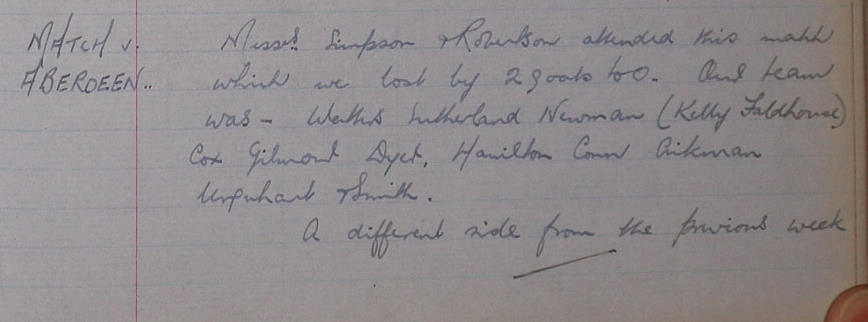 MATCH v. Messrs. Simpson & Robertson attended this match
ABERDEEN.. which we lost by 2 goals to 0. Our team
was - Watters Sutherland Newman (Kelly Faldhouse)
Cox Gilmour Dyet, Hamilton Conn Aikman
Urquhart & Smith.
A different side from the previous week